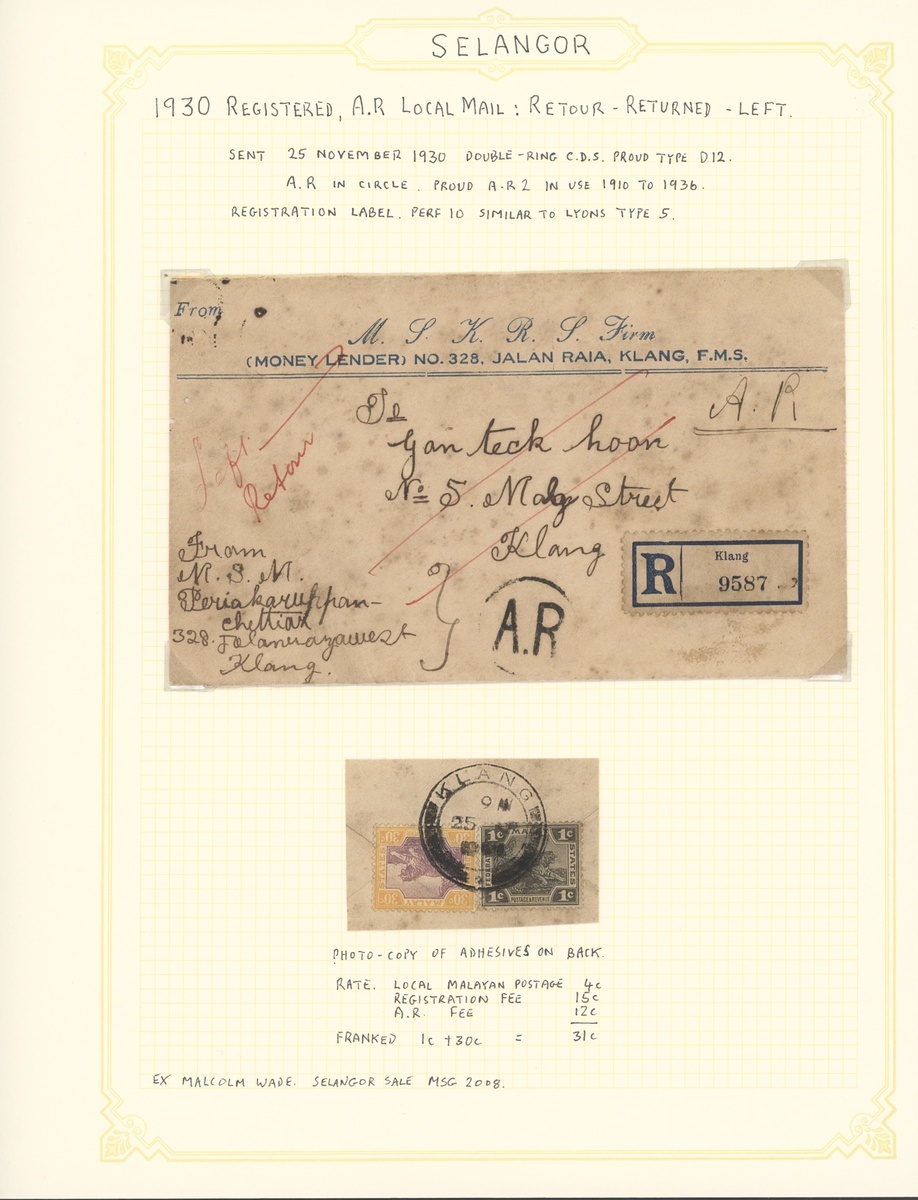 SELANGOR
1930 REGISTERED, A.R LOCAL MAIL : RETOUR - RETURNED - LEFT.
SENT 25 NOVEMBER 1930 DOUBLE-RING C.D.S. PROUD TYPE D12.
A.R IN CIRCLE. PROUD A.R2 IN USE 1910 TO 1936.
REGISTRATION LABEL. PERF 10 SIMILAR TO LYONS TYPE 5.
From
M. S. K. R. S. Firm
(MONEY LENDER) NO. 328, JALAN RAIA, KLANG, F.M.S.
A. R
To
Gan teck hoon
No 5. Malay Street
Klang
Left.
Retour
From
M. S. M.
Periakaruppan-
chettiar
328. Jalanrazawest
Klang.
A.R
R
Klang
9587
KLANG
25
30c
30c
STATES
MALAY
30c
30c
1c
1c
STATES
POSTAGE & REVENUE
1c
1c
PHOTO-COPY OF ADHESIVES ON BACK.
RATE. LOCAL MALAYAN POSTAGE 4c
REGISTRATION FEE 15c
A.R. FEE 12c
FRANKED 1c + 30c = 31c
EX MALCOLM WADE. SELANGOR SALE MSG 2008.